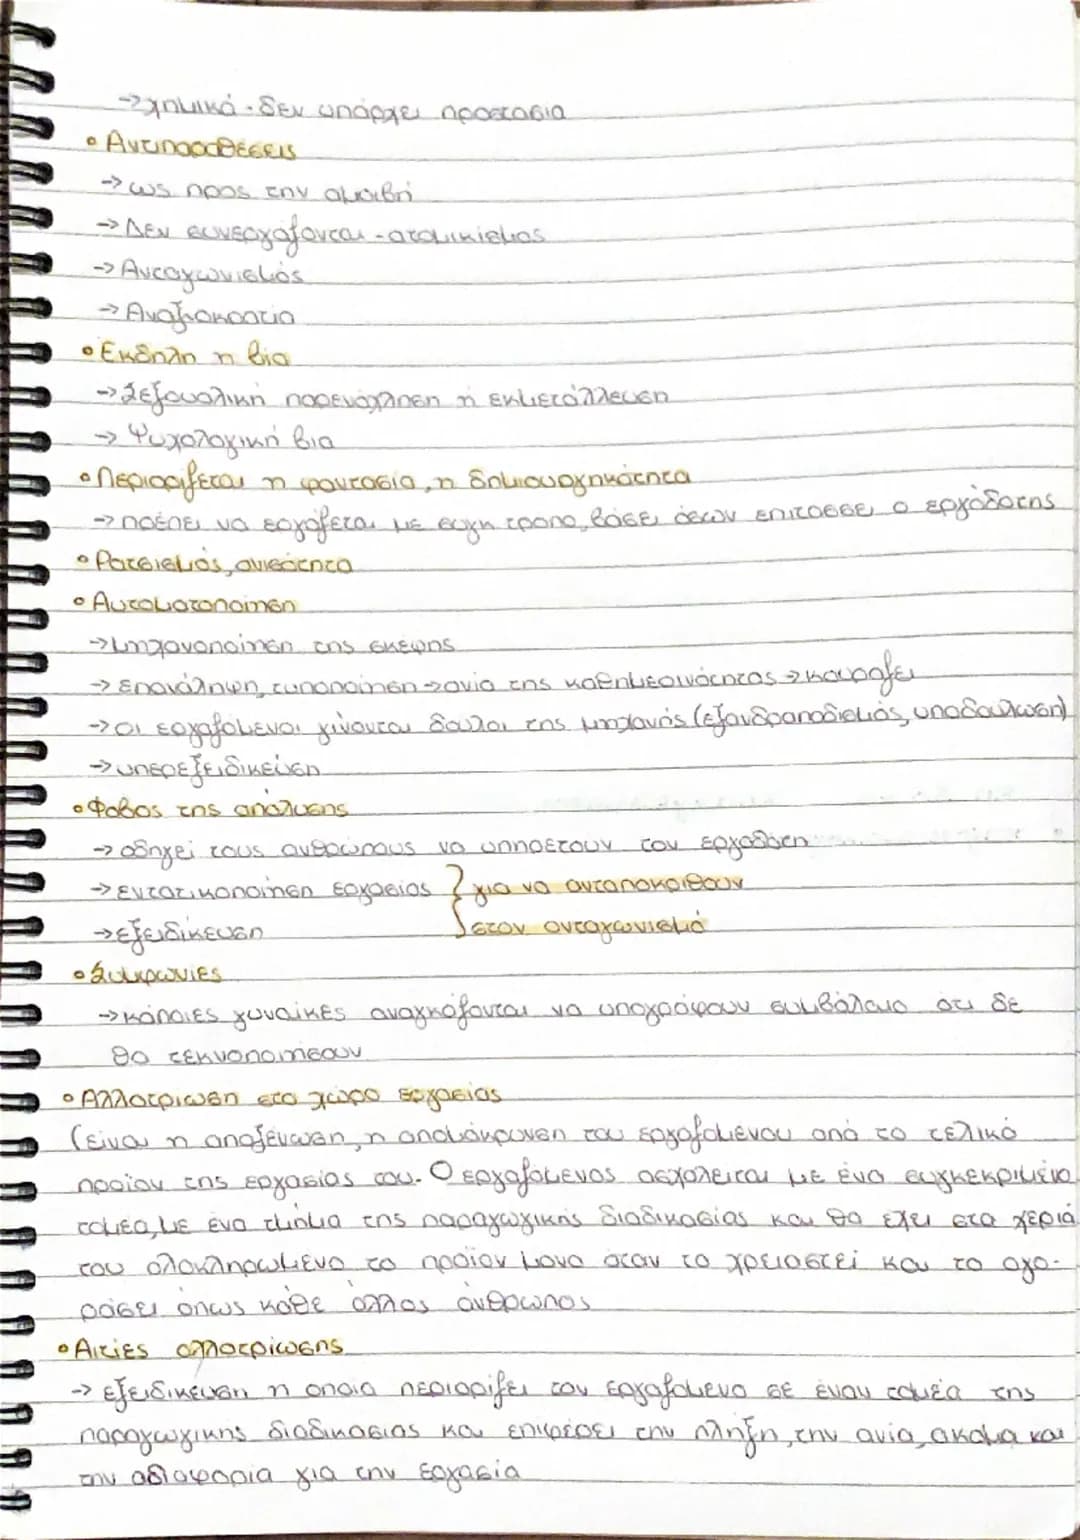 →χημικά - δεν υπάρχει προστασία
• Αντιπαραθέσεις
→ ως προς την αμοιβή
→ Δεν συνεργάζονται - ατομικισμός
→ Ανταγωνισμός
→ Αναξιοκρατία
• Έκδηλη η βία
→ Σεξουαλική παρενόχληση ή εκμετάλλευση
→ Ψυχολογική βία
• Περιορίζεται η φαντασία, η δημιουργηκότητα
→ πρέπει να εργάζεται με τρόπο, βάσει όσων επιτάσσει ο εργόδοτης
• Ρατσισμός, ανισότητα
• Αυτοματοποίηση
→ μηχανοποίηση της σκέψης
→ επανάληψη, τυποποίηση → ανία της καθημερινότητας → κουράζει
→ οι εργαζόμενοι γίνονται δούλοι της μηχανής (εξανδραποδισμός, υποδούλωση)
→ υπερεξειδίκευση
• Φόβος της απόλυσης
→ οδηγεί τους ανθρώπους να υπηρετούν τον εργοδότη
→ εντατικοποίηση εργασίας } για να ανταποκριθούν
→ εξειδίκευση } στον ανταγωνισμό
• Συμφωνίες
→ κάποιες γυναίκες αναγκάζονται να υπογράφουν συμβόλαιο ότι δε
θα τεκνοποιήσουν
• Αλλοτρίωση στο χώρο εργασίας
(είναι η αποξένωση, η απομάκρυνση του εργαζόμενου από το τελικό
προϊον της εργασίας του. Ο εργαζόμενος ασχολείται με ένα συγκεκριμένο
τομέα, με ένα τμήμα της παραγωγικής διαδικασίας και θα έχει στα χέριά
του ολοκληρωμένο το προϊον μονο όταν το χρειαστεί και το αγο-
ράσει όπως κάθε άλλος άνθρωπος
• Αιτίες αλλοτρίωσης
→ εξειδίκευση η οποία περιορίζει τον εργαζόμενο σε έναν τομέα της
παραγωγικής διαδικασίας και επιφέρει την πλήξη, την ανία, ακόμα και
την αδιαφορία για την εργασία